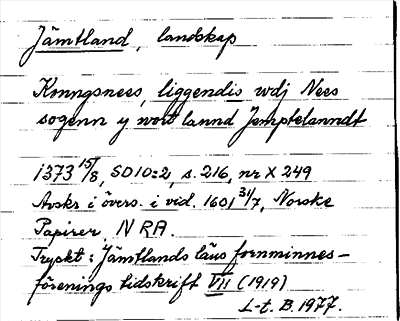 Jämtland, landskap
Konngsnees, liggendis wdj Nees
sogenn y wort lannd Jemptelanndt
1373 15/8, SD10:2, s. 216, nr X 249
Avskr i övers. i vid. 1601 31/7, Norske
Papirer, NRA.
Tryckt: Jämtlands läns fornminnes-
förenings tidskrift VII (1919)
L-t. B. 1977.